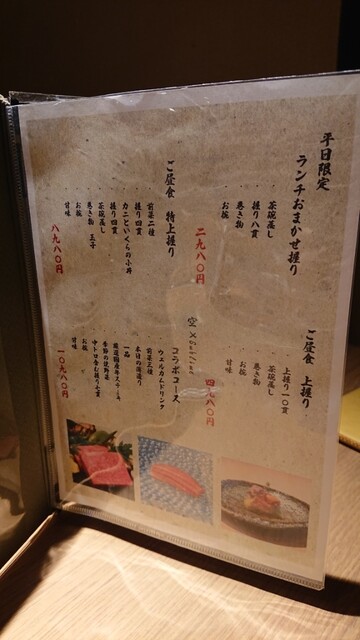 平日限定
ランチおまかせ握り
・茶碗蒸し
・握り八貫
・巻き物
・お椀
二九八〇円
ご昼食 特上握り
・前菜二種
・握り四貫
・カニといくらの小丼
・握り四貫
・茶碗蒸し
・巻き物 玉子
・お椀
・甘味
八九八〇円
ご昼食 上握り
・上握り一〇貫
・茶碗蒸し
・巻き物
・お椀
・甘味
四九八〇円
空 ×
コラボコース
・ウェルカムドリンク
・前菜三種
・本日の薄造り
・一品
・厳選国産牛ステーキ
・季節の焼野菜
・中トロ含む握り十貫
・お椀
・甘味
一〇九八〇円